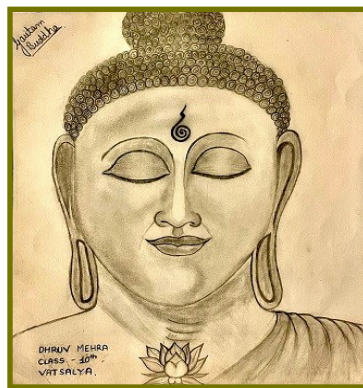 Gautam
Buddha
DHRUV MEHRA
CLASS - 10th
VATSALYA.